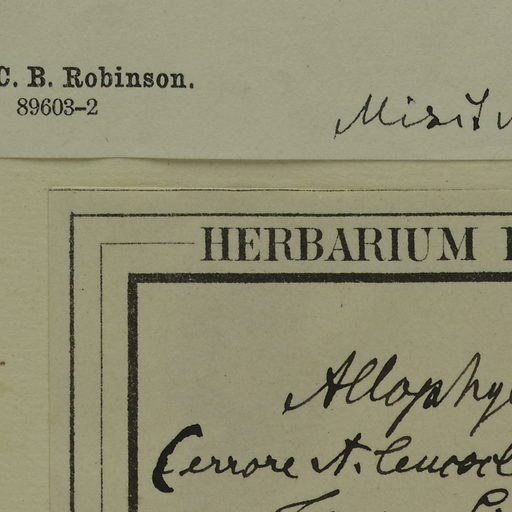 C. B. Robinson.
89603-2
HERBARIUM
Allophy
(errore A. leucocl